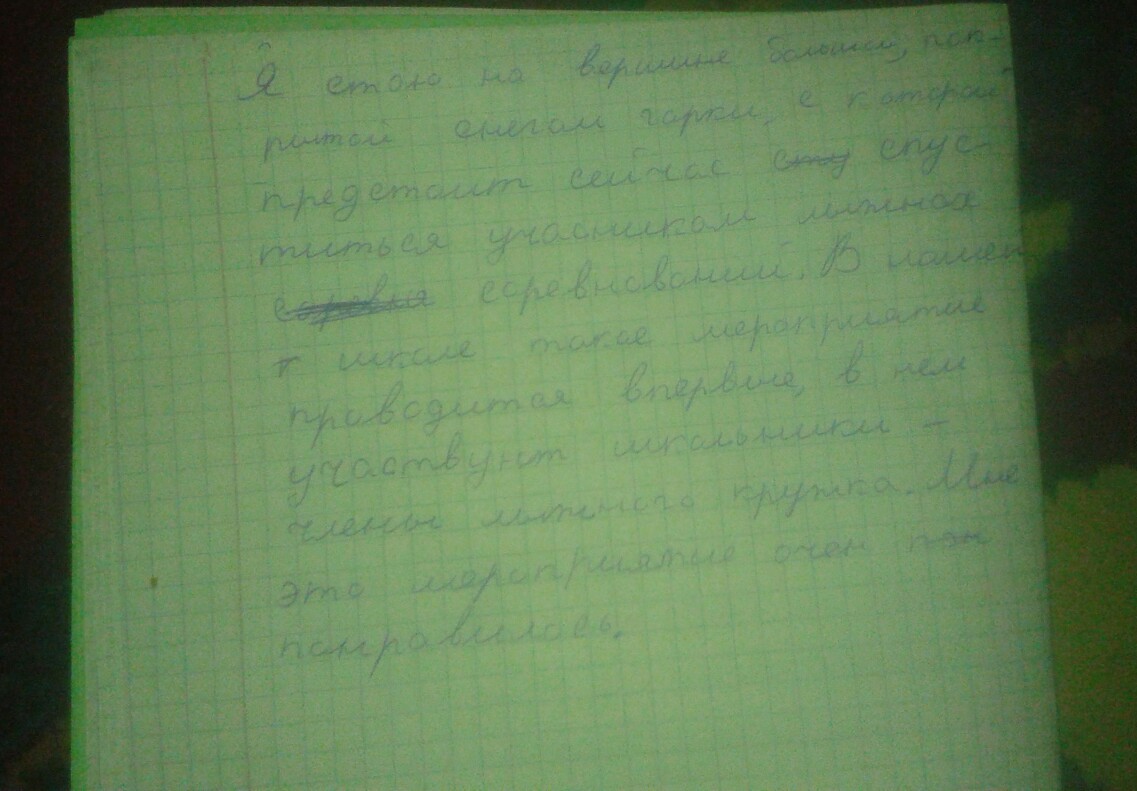 Я стою на вершине большой, пок-
рытой снегом горки, с которой
предстоит сейчас спус-
титься учасникам лыжных
соревнований. В нашей
школе такое мероприятие
проводится впервые, в нем
участвуют школьники -
члены лыжного кружка. Мне
это мероприятие очен
понравилось.